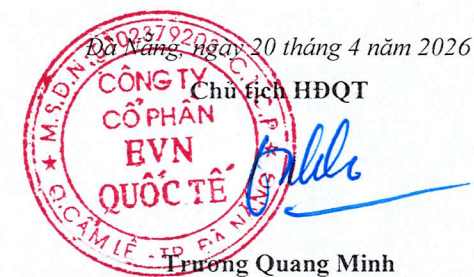 Đà Nẵng, ngày 20 tháng 4 năm 2026
Chủ tịch HĐQT
CÔNG TY
CỔ PHẦN
EVN
QUỐC TẾ
Q.CẨM LỆ - TP. ĐÀ NẴNG
Trương Quang Minh